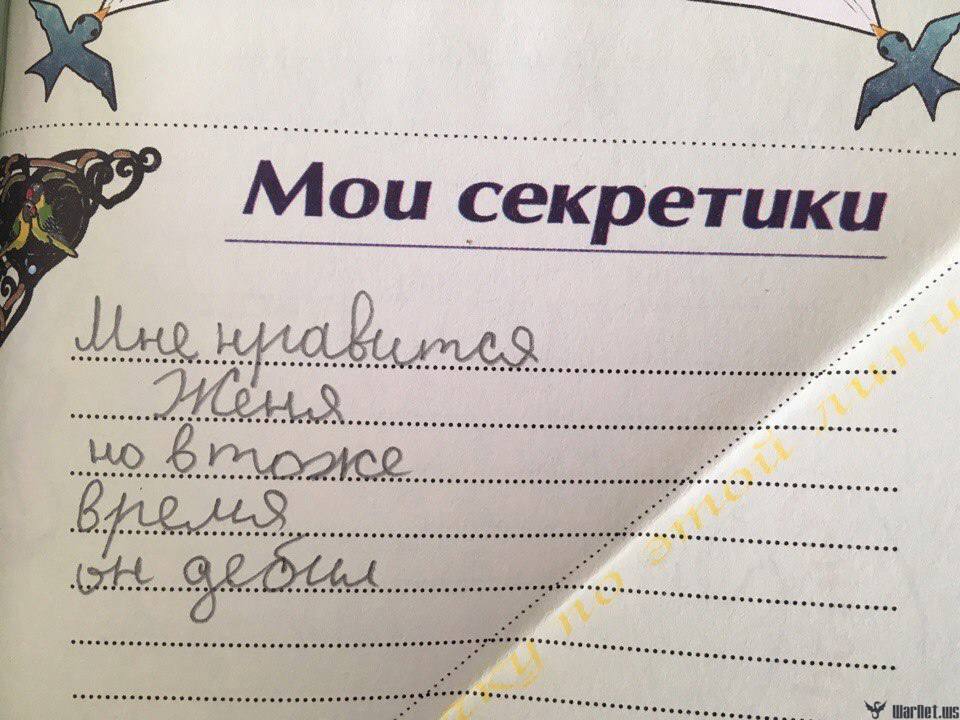 Мои секретики
Мне нравится
Женя
но в тоже
время
он дебил
ку по этой лини
WarNet.ws